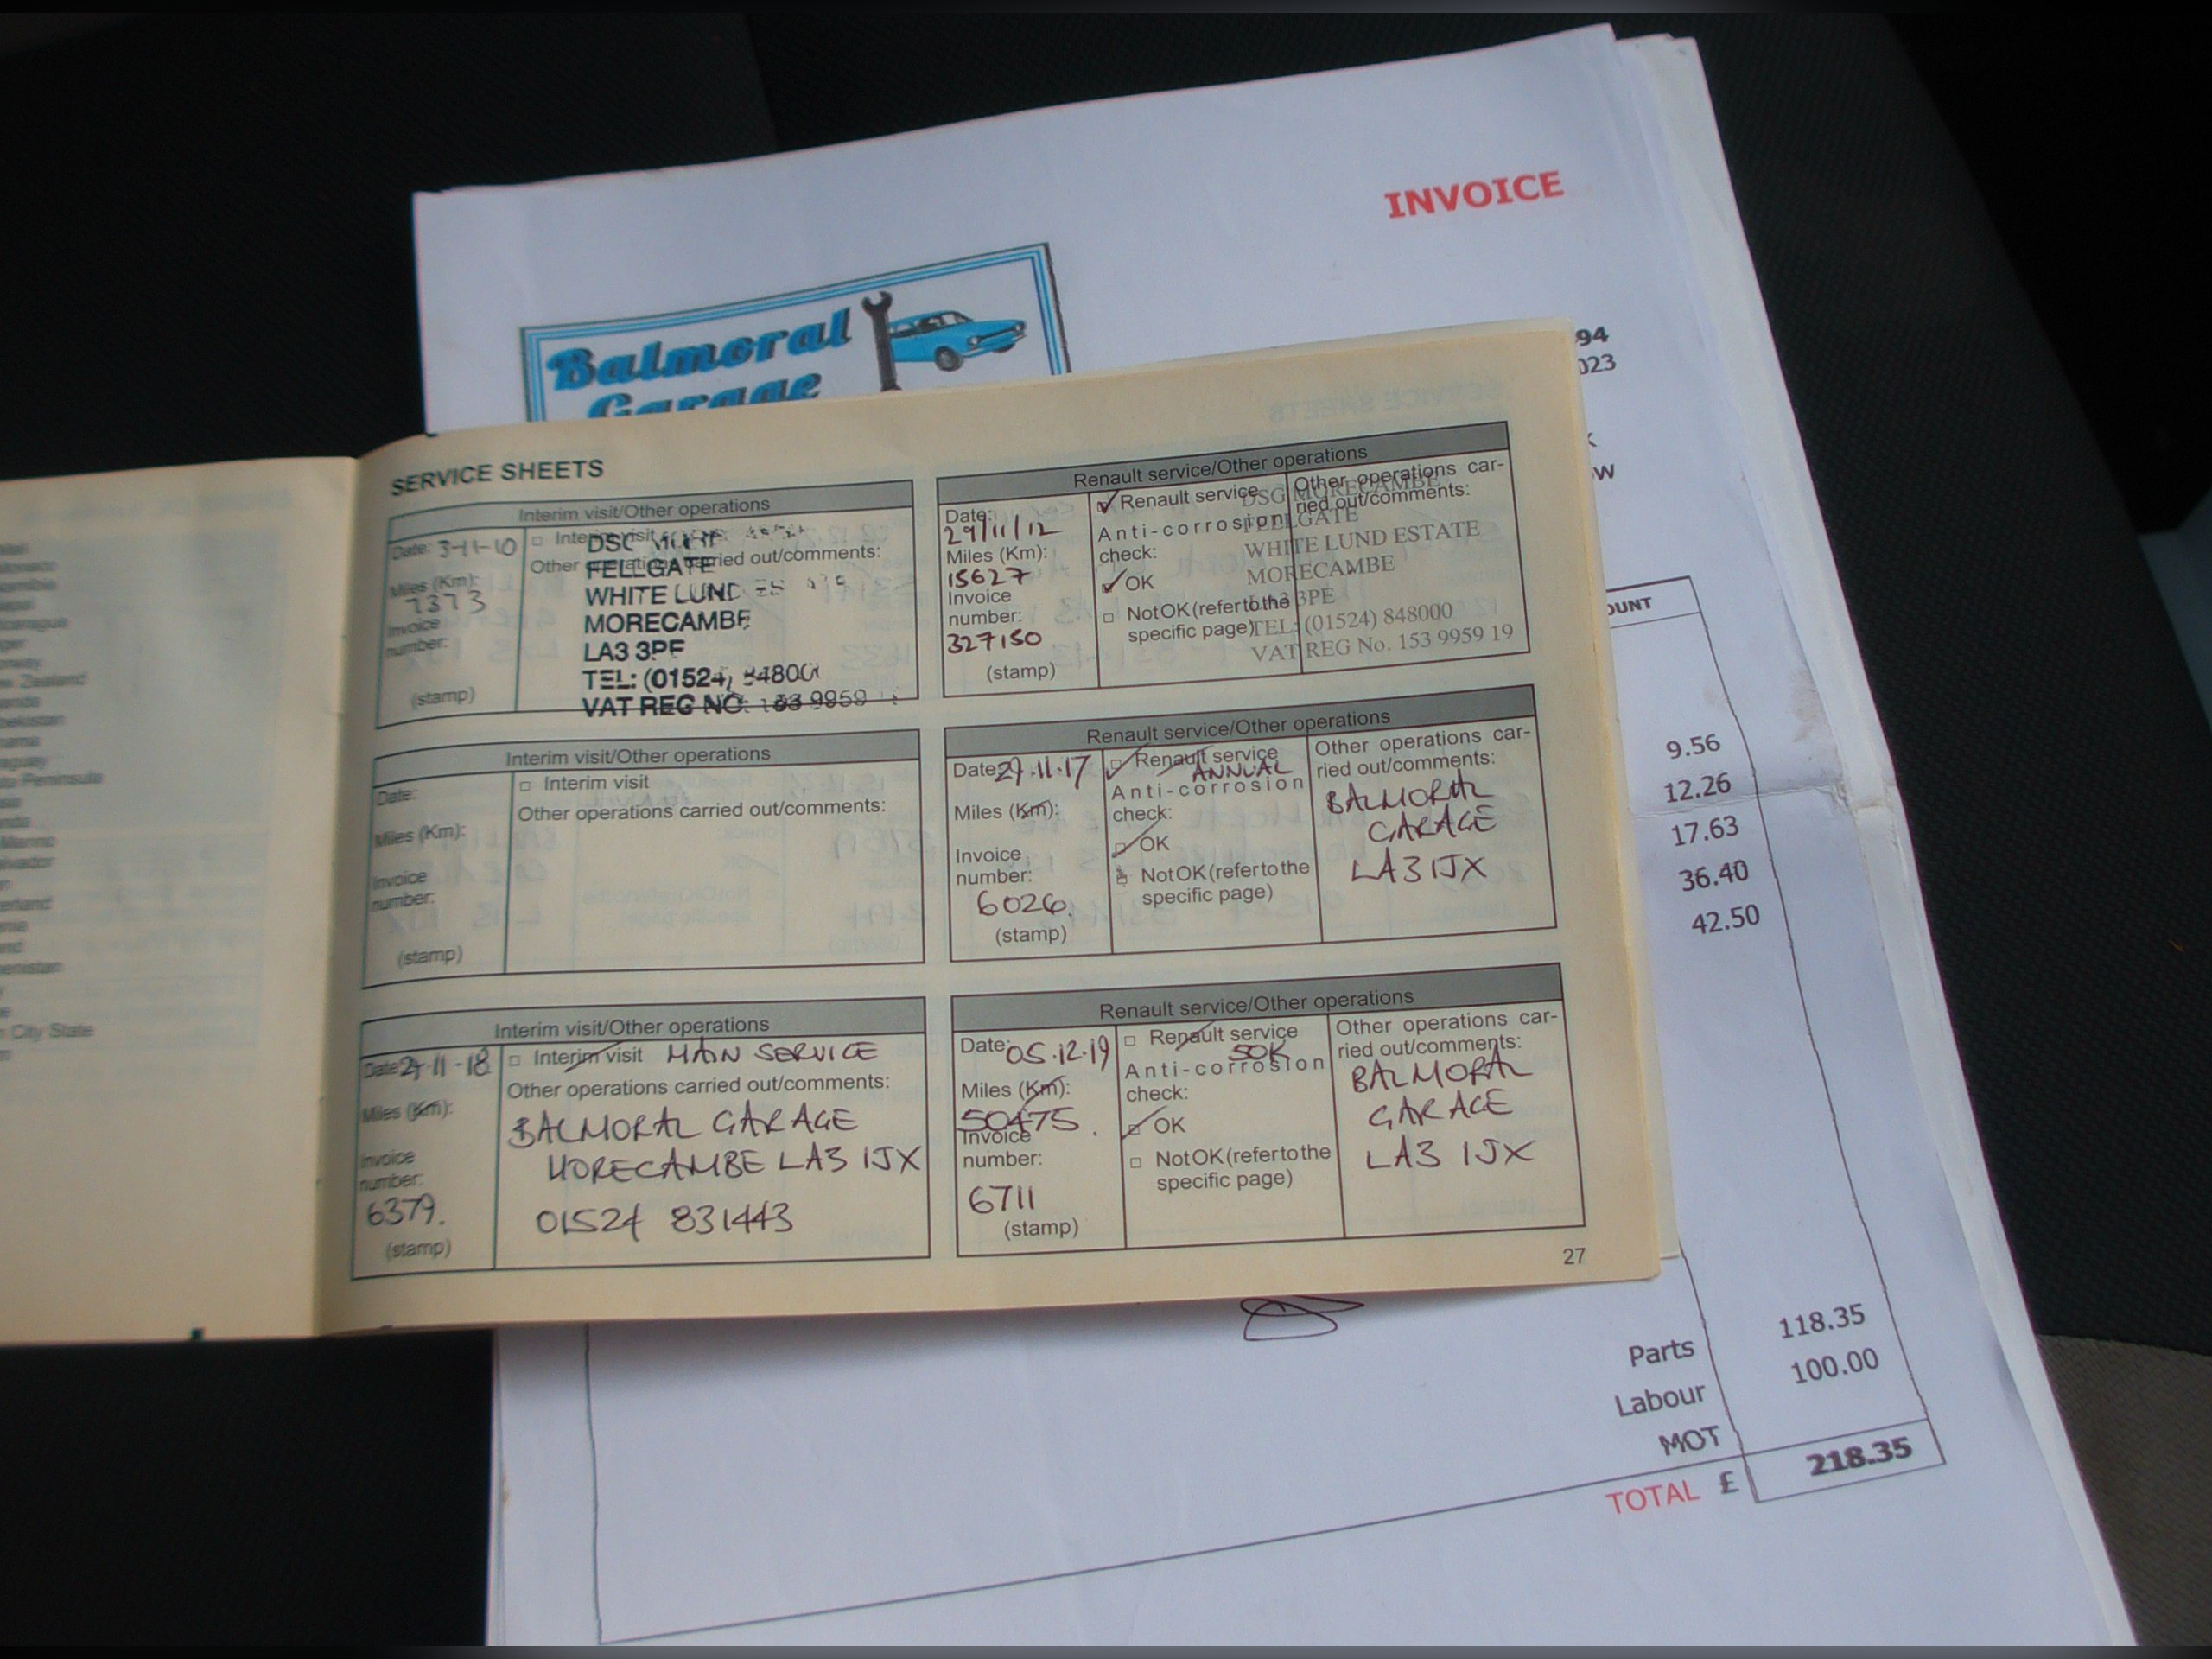 INVOICE
Balmoral
Garage
94
023
W
OUNT
9.56
12.26
17.63
36.40
42.50
Parts 118.35
Labour 100.00
MOT
TOTAL £ 218.35
SERVICE SHEETS
Interim visit/Other operations
Date: 3-11-10
Interim visit
Other operations carried out/comments:
Miles (Km):
7373
Invoice
number:
(stamp)
FELLGATE
WHITE LUND
MORECAMBE
LA3 3PE
TEL: (01524)
VAT REG NO.
Renault service/Other operations
Date:
29/11/12
Miles (Km):
15627
Invoice
number:
327150
(stamp)
Renault service
Anti-corrosion
check:
OK
Not OK (refer to the
specific page)
Other operations car-
ried out/comments:
DSG MORECAMBE
FELLGATE
WHITE LUND ESTATE
MORECAMBE
3PE
TEL: (01524) 848000
VAT REG No. 153 9959 19
Interim visit/Other operations
Date:
Miles (Km):
Invoice
number:
(stamp)
Interim visit
Other operations carried out/comments:
Renault service/Other operations
Date: 29.11.17
Miles (Km):
Invoice
number:
6026.
(stamp)
Renault service
ANNUAL
Anti-corrosion
check:
OK
Not OK (refer to the
specific page)
Other operations car-
ried out/comments:
BALMORAL
GARAGE
LA3 1JX
Interim visit/Other operations
Date:
Miles (Km):
Invoice
number:
6379.
(stamp)
Interim visit MAIN SERVICE
Other operations carried out/comments:
BALMORAL GARAGE
MORECAMBE LA3 1JX
01524 831443
Renault service/Other operations
Date: 05.12.19
Miles (Km):
50475.
Invoice
number:
6711
(stamp)
Renault service
50K
Anti-corrosion
check:
OK
Not OK (refer to the
specific page)
Other operations car-
ried out/comments:
BALMORAL
GARAGE
LA3 1JX
27